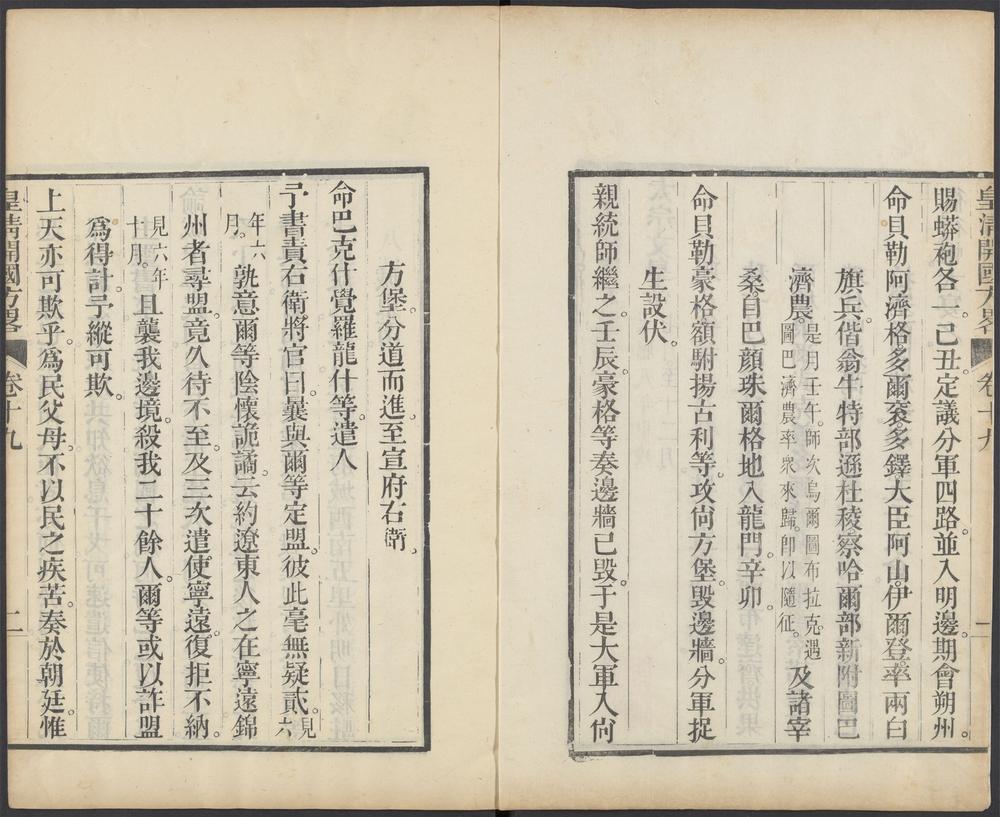 皇淸開國方畧 卷十九 一
賜蟒袍各一。己丑定議分軍四路。並入明邊。期會朔州。
命貝勒阿濟格。多爾袞。多鐸。大臣阿山。伊爾登。率兩白
旗兵。偕翁牛特部遜杜稜察哈爾部新附圖巴
濟農。是月壬午。師次烏爾圖布拉克。遇圖巴濟農率衆來歸。卽以隨征。及諸宰
桑。自巴顏珠爾格地入龍門。辛卯。
命貝勒豪格額駙揚古利等。攻尙方堡。毀邊牆。分軍捉
生設伏。
親統師繼之。壬辰。豪格等奏邊牆已毀。于是大軍入尙
方堡。分道而進。至宣府右衛。
命巴克什覺羅龍什等。遣人
予書責右衛將官曰。曩與爾等定盟。彼此毫無疑貳。見六
年六月。孰意爾等陰懷詭譎。云約遼東人之在寧遠錦
州者尋盟。竟久待不至。及三次遣使寧遠。復拒不納。
見六年十月。且襲我邊境。殺我二十餘人。爾等或以詐盟
爲得計。予縱可欺。
上天亦可欺乎。爲民父母。不以民之疾苦。奏於朝廷。惟
皇淸開國方畧 卷十九 二